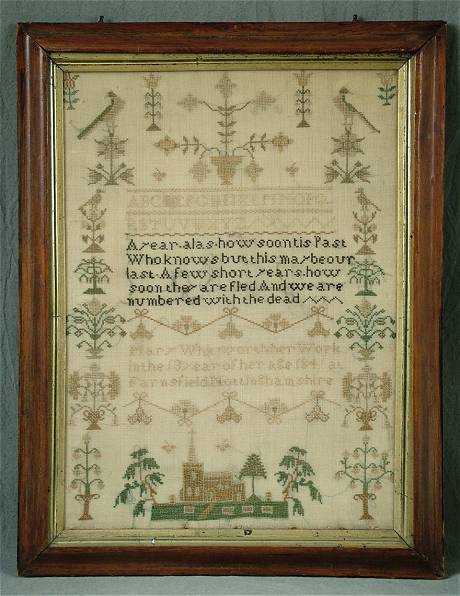 ABCDEFGHIJKLMNOPQ
RSTUVWXYZ
A year alas how soon tis Past
Who knows but this may be our
last. A few short years how
soon they are fled And we are
numbered with the dead
Mary her Work
in the 13 year of her age 184 at
Farnsfield Nottinghamshire